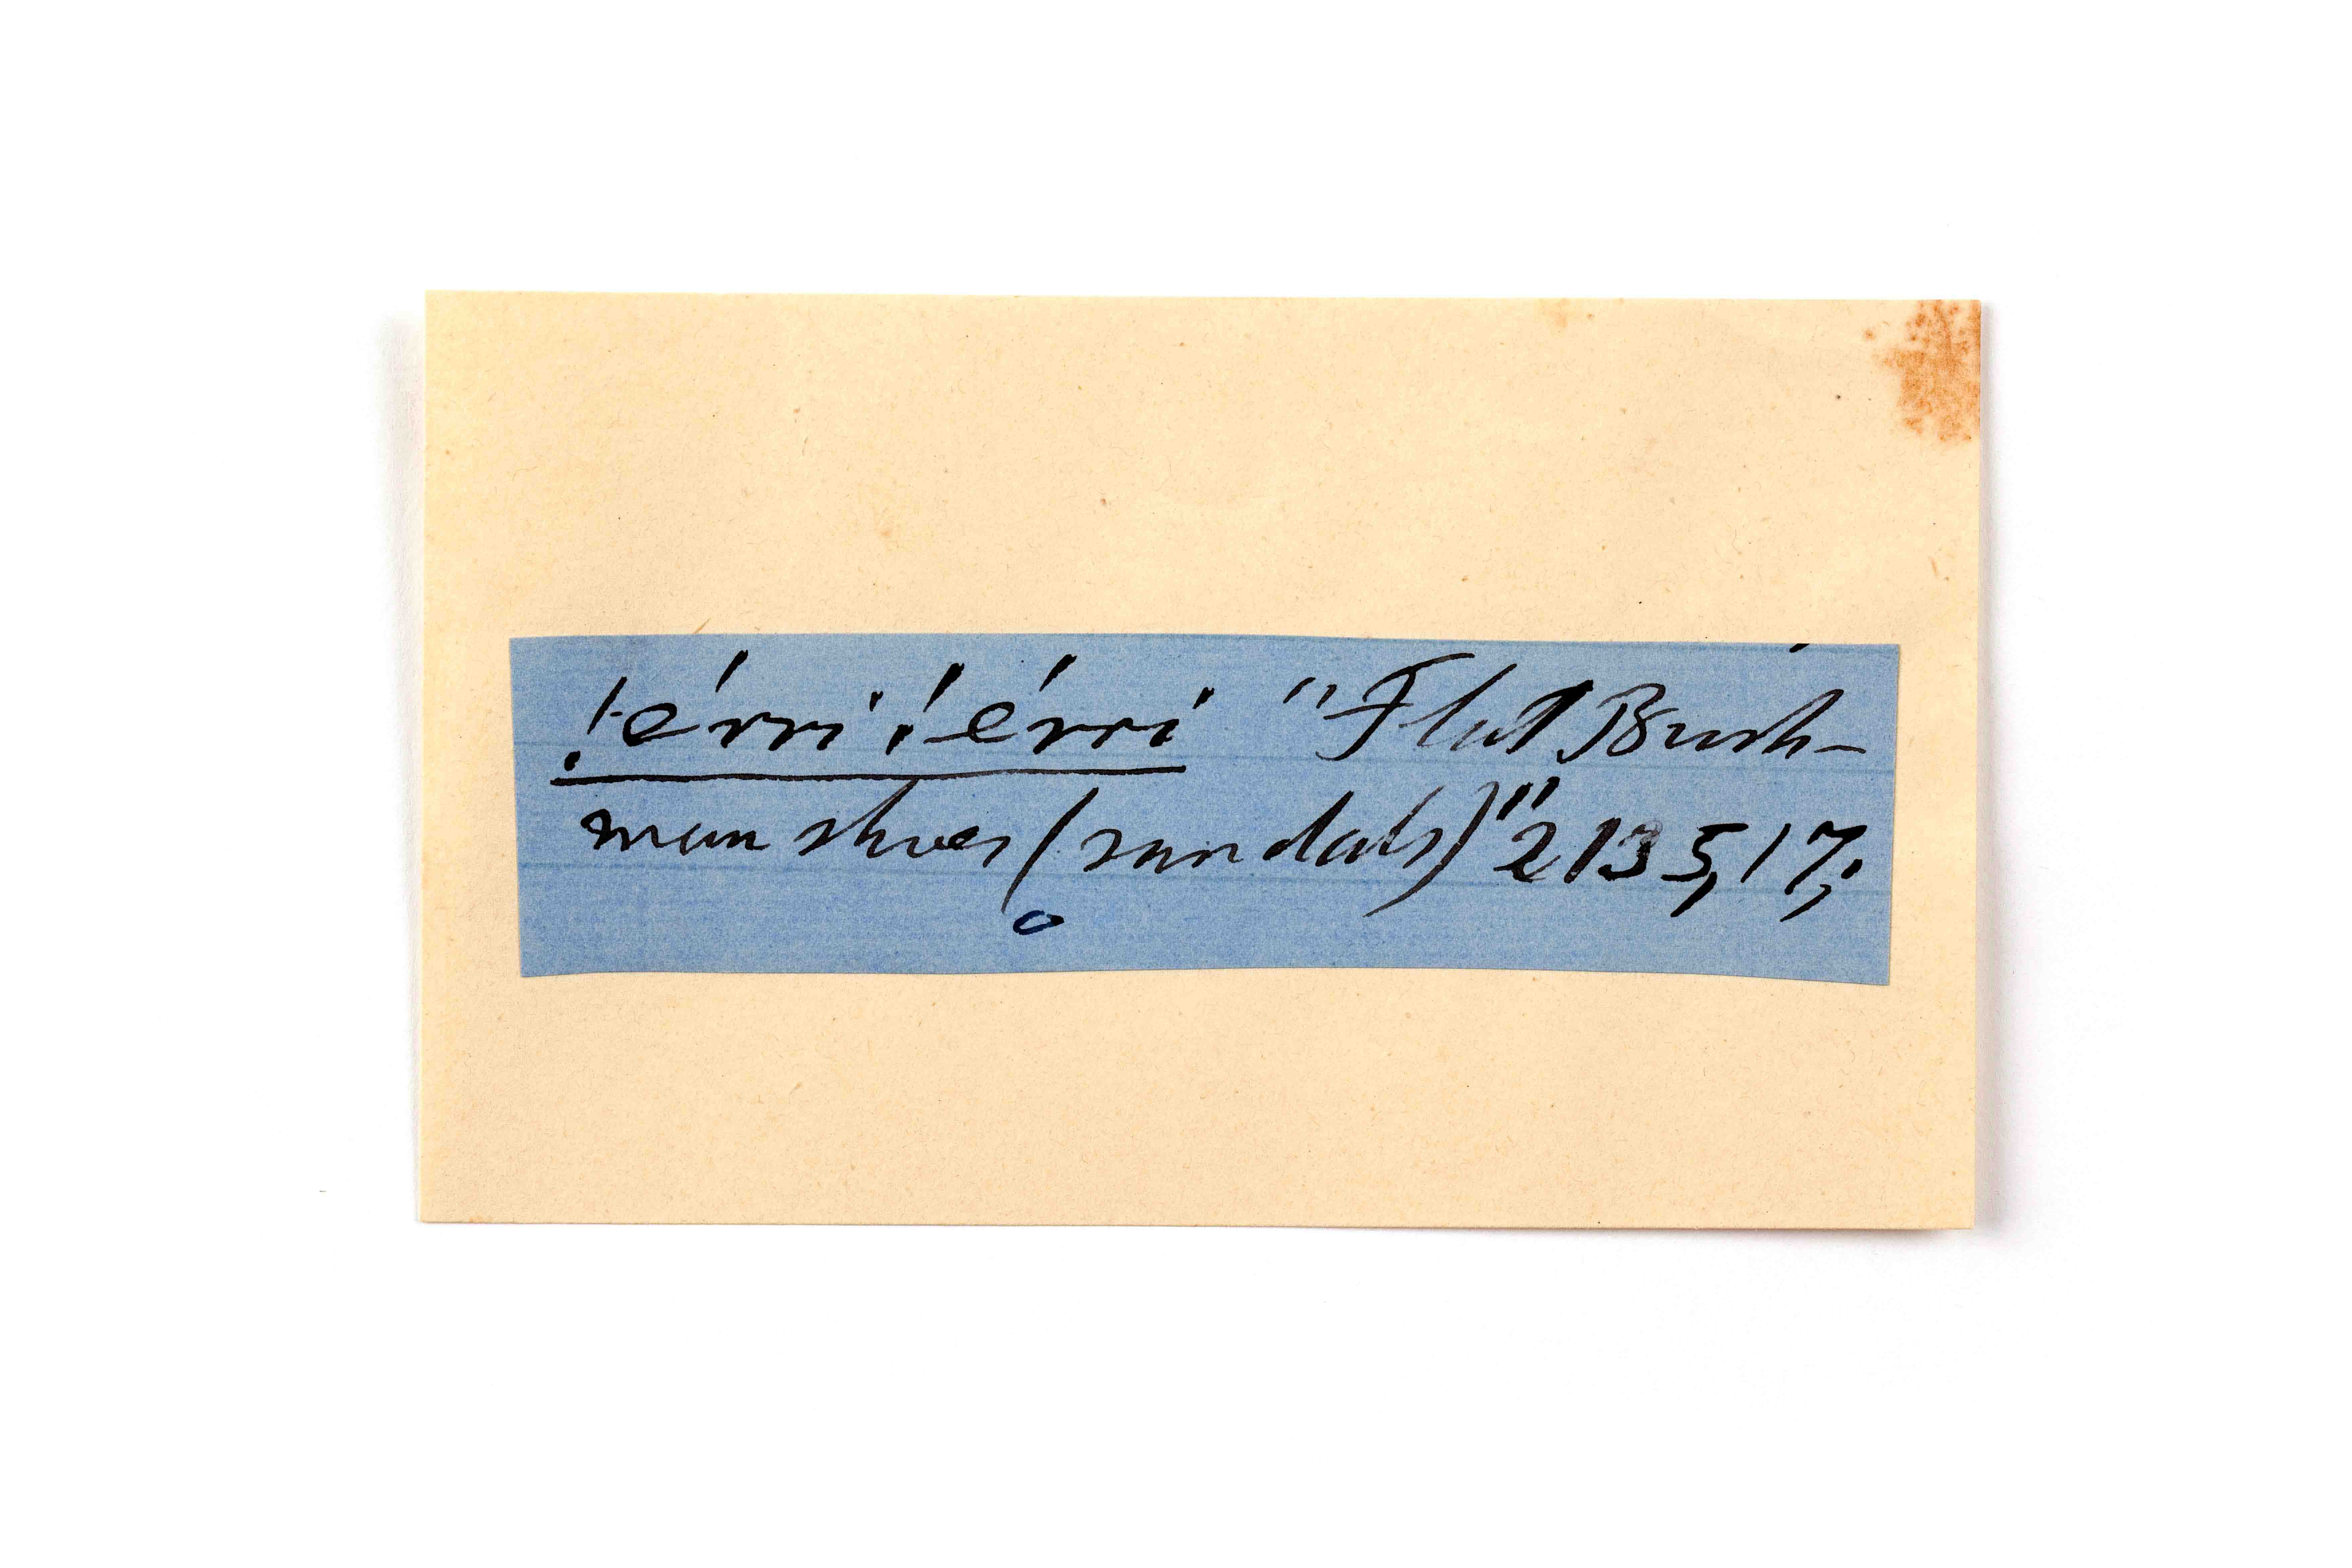 !érri!érri "Flat Bush-
man shoes (sandals)" 2135,17;